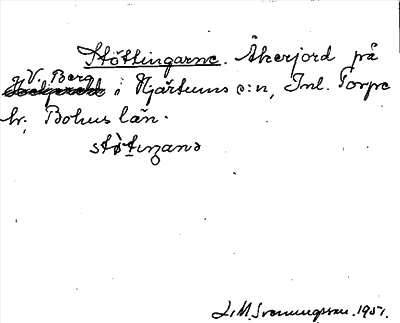 Stöttingarne. Åkerjord på
V. Berg i Hjärtums s:n, Inl. Torpe
hr, Bohus län.
stö̀tıŋana
J. M. Svenungsson. 1951.